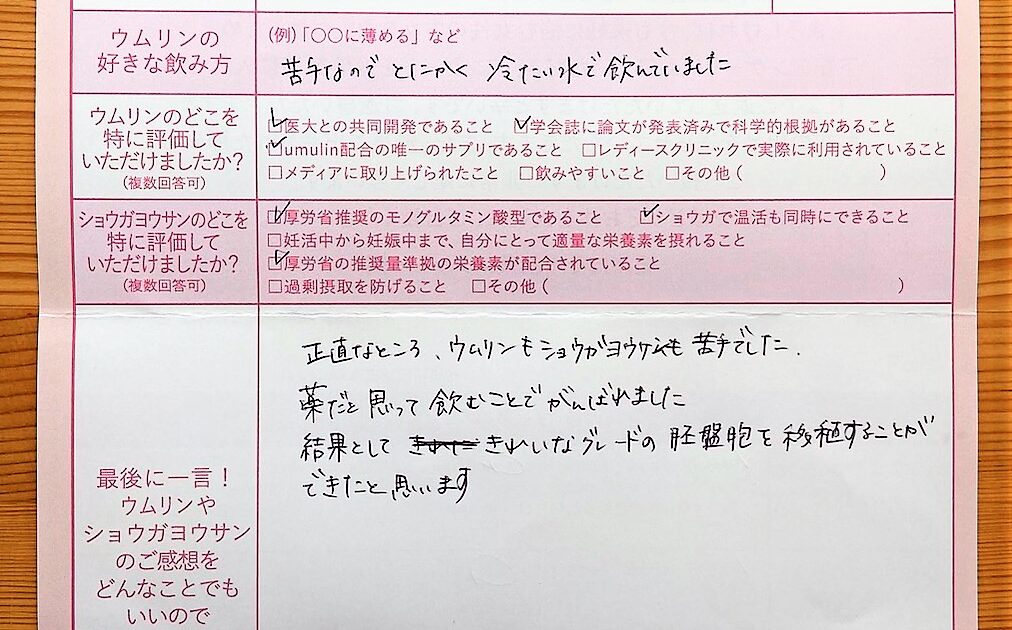 ウムリンの
好きな飲み方
(例)「〇〇に薄める」など
苦手なので とにかく 冷たい水で飲んでいました
ウムリンのどこを
特に評価して
いただけましたか?
(複数回答可)
☑医大との共同開発であること ☑学会誌に論文が発表済みで科学的根拠があること
☑umulin配合の唯一のサプリであること □レディースクリニックで実際に利用されていること
□メディアに取り上げられたこと □飲みやすいこと □その他( )
ショウガヨウサンのどこを
特に評価して
いただけましたか?
(複数回答可)
☑厚労省推奨のモノグルタミン酸型であること ☑ショウガで温活も同時にできること
□妊活中から妊娠中まで、自分にとって適量な栄養素を摂れること
☑厚労省の推奨量準拠の栄養素が配合されていること
□過剰摂取を防げること □その他( )
最後に一言!
ウムリンや
ショウガヨウサン
のご感想を
どんなことでも
いいので
正直なところ、ウムリンもショウガヨウサンも苦手でした.
薬だと思って飲むことでがんばれました
結果として きれいなグレードの胚盤胞を移植することが
できたと思います